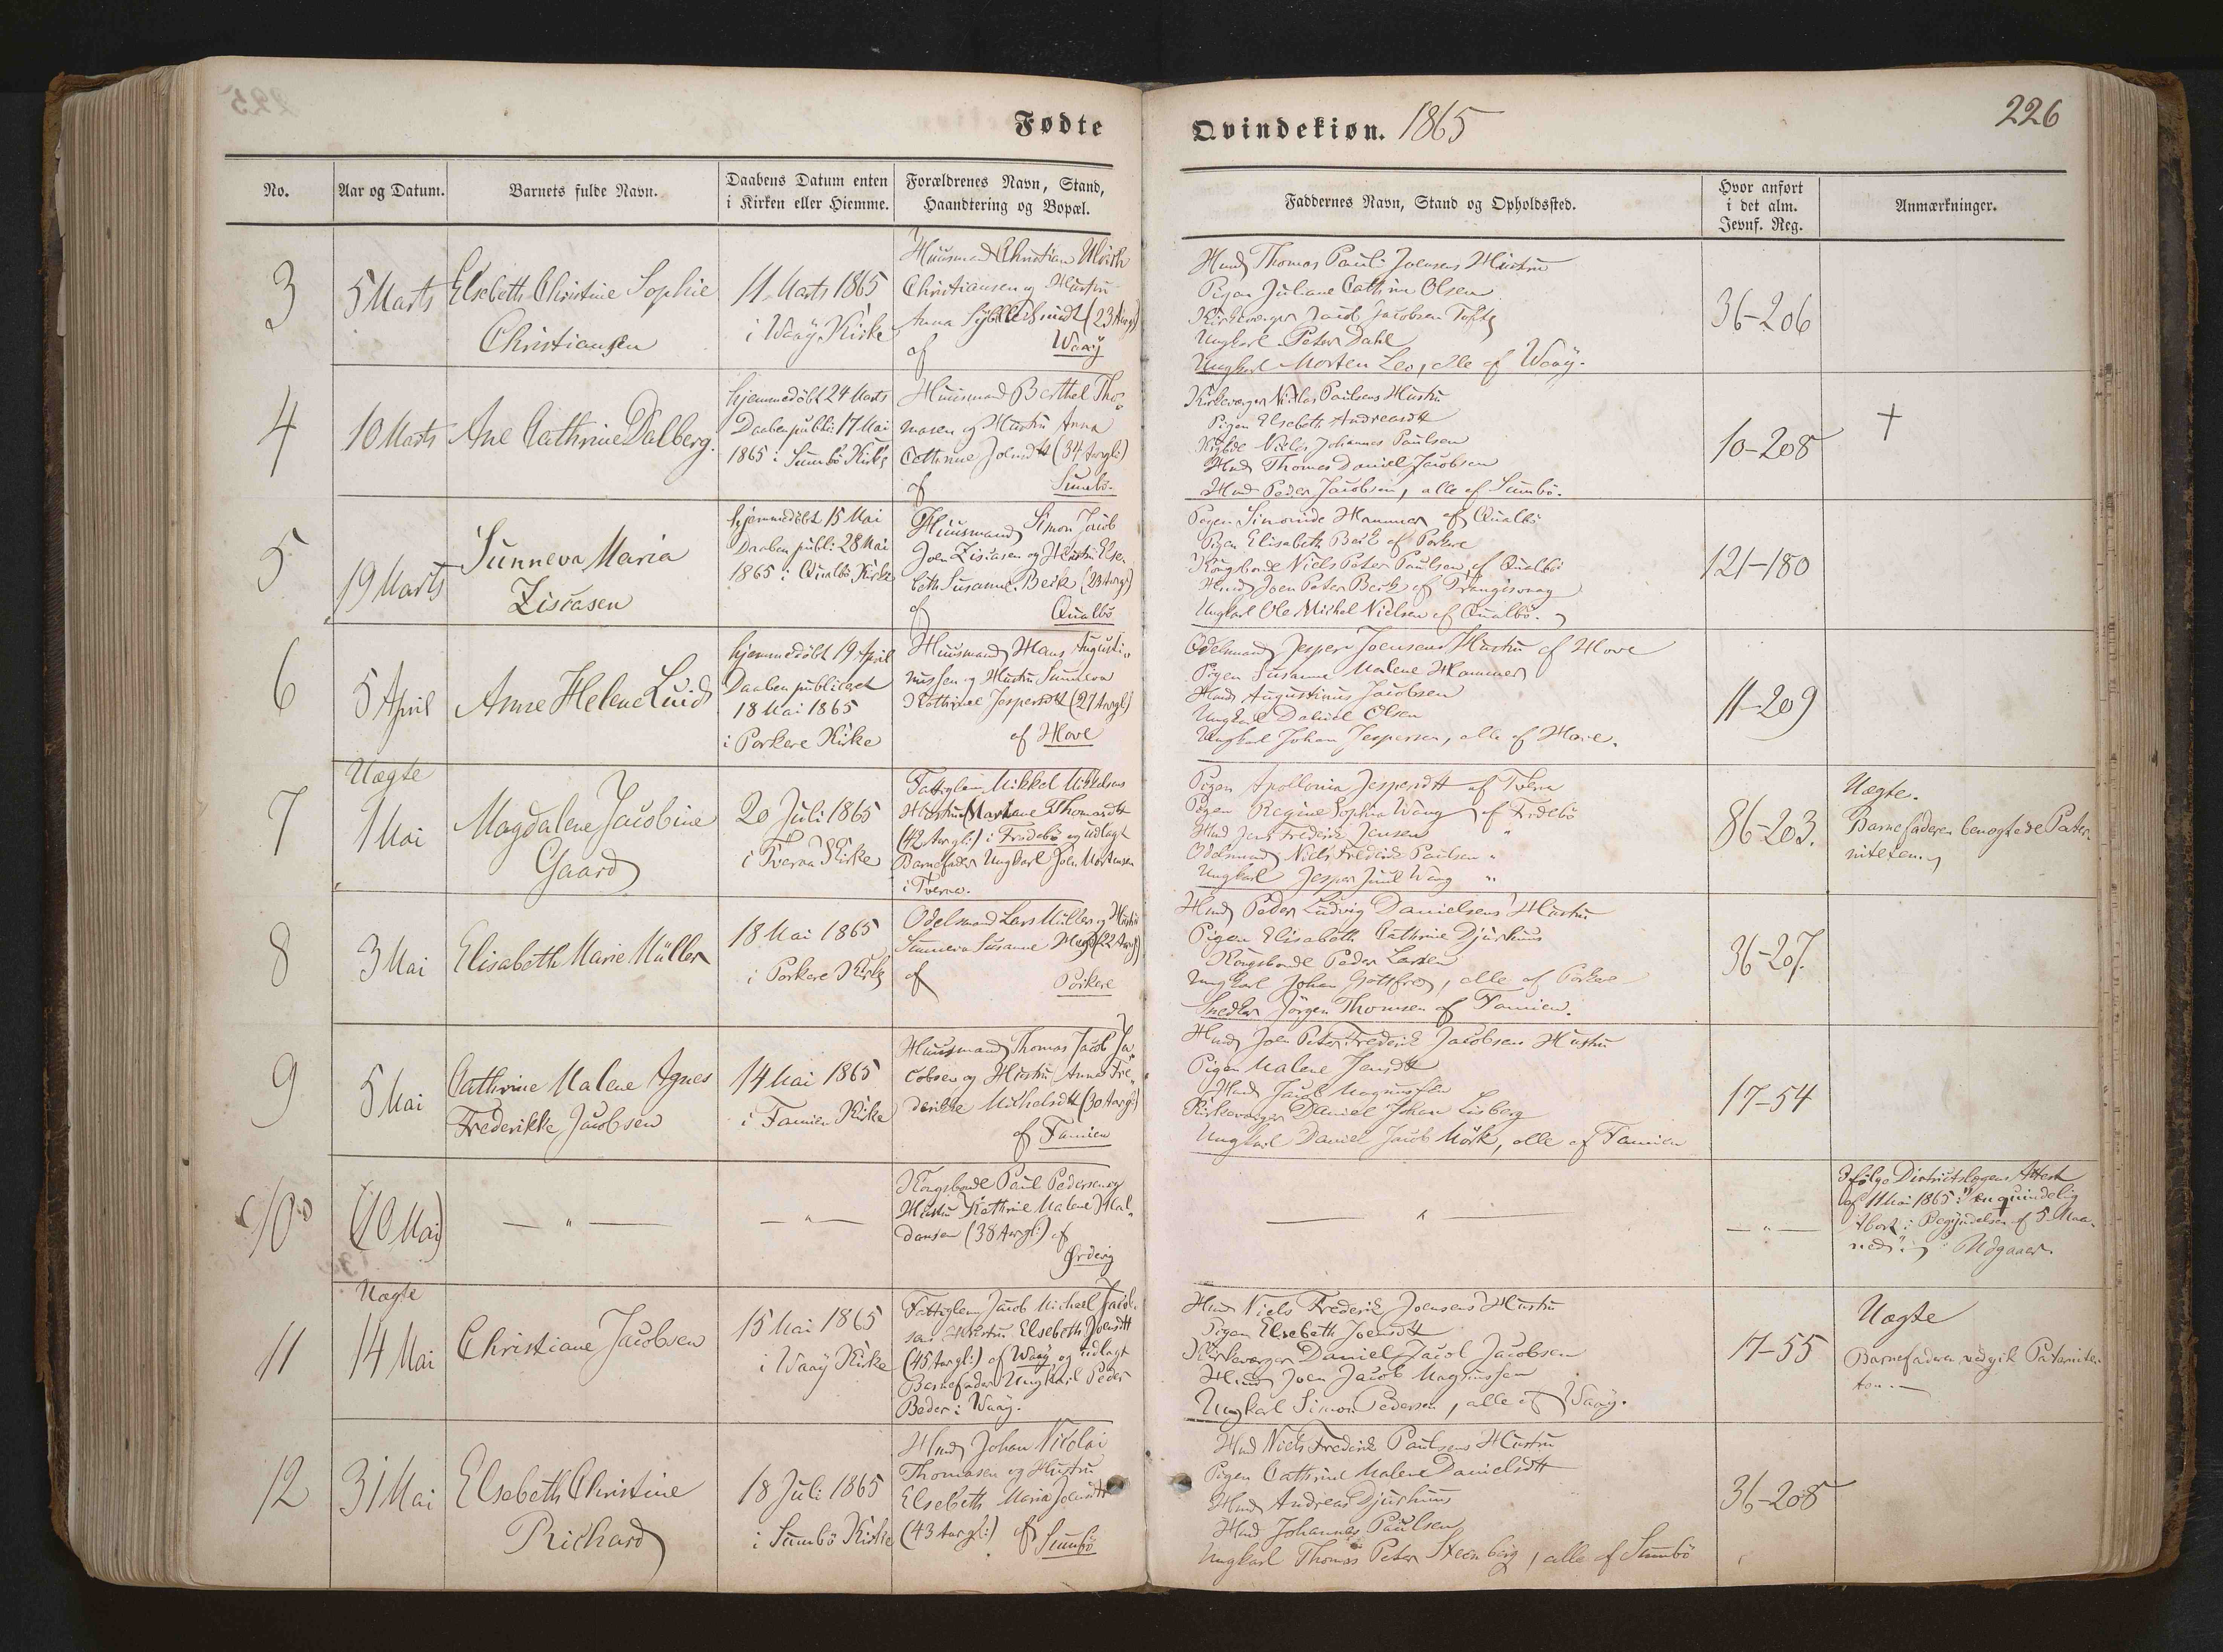 Fødte
No.
Aar og Datum.
Barnets fulde Navn.
Daabens Datum enten
i Kirken eller Hiemme.
Forældrenes Navn, Stand,
Haandtering og Bopæl.
3
5 Marts
Elsebeth Christine Sophie
Christiansen
11 Marts 1865
i Waag Kirke
Huusmand Christian
Christiansen og Hustru
Anna (23 Aargl)
af Waag
4
10 Marts
Ane Cathrine Dalberg.
hjemmedöbt 24 Marts
Daaben publi: 17 Mai
1865 i Sumbö Kirke
Huusmand Berthel Tho-
masen og Hustru Anna
Cathrine Joensdtt (34 Aargl:)
af Sumbö.
5
19 Marts
Sunneva Maria
Zisiasen
hjemmedöbt 15 Mai
Daaben publi: 28 Mai
1865 i Qualbö Kirke
Huusmand Simon Jacob
Joen Zisiasen og Hustru Else-
beth Susanne Beck (23 Aargl)
af Qualbö
6
5 April
Anne Helene Luid
hjemmedöbt 19 April
Daaben publiceret
18 Mai 1865
i Porkere Kirke
Huusmand Hans Augusti-
nussen og Hustru Sunneva
Kathrine Jespersdtt (27 Aargl)
af Hove
7
Uægte
1 Mai
Magdalene Jacobine
Gaard
20 Juli 1865
i Tveraa Kirke
Fattiglem Mikkel Mikkelsens
Hustru Marhane Thomasdtt
(42 Aargl:) i Frodebö og udlagt
Barnefader Ungkarl Joen Mortensen
i Tveraa.
8
3 Mai
Elisabeth Marie Müller
18 Mai 1865
i Porkere Kirke
Odelsmand Lars Müller og Hustru
Sunneva Susanne (22 Aargl)
af Porkere
9
5 Mai
Cathrine Malene Agnes
Frederikke Jacobsen
14 Mai 1865
i Famien Kirke
Huusmand Thomas Jacob Ja-
cobsen og Hustru Anna Fre-
derikke Michelsdtt (30 Aargl)
af Famien
10
(10 Mai)
— " —
— " —
Kongsbonde Paul Pedersen og
Hustru Kathrine Malene Hal-
dansen (38 Aargl:) af
Ørdevig
11
Uægte
14 Mai
Christiane Jacobsen
15 Mai 1865
i Waag Kirke
Fattiglem Jacob Michael Jacob-
sens Hustru Elsebeth Joensdtt
(45 Aargl:) af Waag og udlagt
Barnefader Ungkarl Peder
Beder i Waag.
12
31 Mai
Elsebeth Christine
Richard
18 Juli 1865
i Sumbö Kirke
Hmd Johan Nicolai
Thomasen og Hustru
Elsebeth Maria Joensdtt
(43 Aargl:) af Sumbö
Qvindekiøn. 1865
226
Faddernes Navn, Stand og Opholdssted.
Hvor anført
i det alm.
Jevnf. Reg.
Anmærkninger.
Hmd Thomas Pauli Joensens Hustru
Pigen Juliane Cathrine Olsen
Kirkeværger Jacob Jacobsen Tofte
Ungkarl Peter Dahl
Ungkarl Morten Leo, alle af Waag.
36-206
Kirkeværger Niclas Paulsens Hustru
Pigen Elsebeth Andreasdtt
Niclas Johannes Paulsen
Hmd Thomas Daniel Jacobsen
Hmd Peder Jacobsen, alle af Sumbö.
10-208
+
Pigen Simonide Hammer af Qualbö
Pigen Elisabeth Beck af Porkere
Kongsbonde Niels Peter Paulsen af Qualbö
Hmd Joen Peter Beck af Trangisvaag
Ungkarl Ole Michel Nielsen af Qualbö.
121-180
Odelsmand Jesper Joensens Hustru af Hove
Pigen Susanne Malene Hammer
Hmd Augustinus Jacobsen
Ungkarl Daniel Olsen
Ungkarl Johan Jespersen, alle af Hove.
11-209
Pigen Apollonia Jespersdtt af Tvera
Pigen Regine Sophia Wang af Frodebö
Hmd Jens Frederik Jensen "
Odelsmand Niels Frederik Paulsen "
Ungkarl Jesper Juul Wang "
86-203.
Uægte.
Barnefaderen benegtede Pater-
niteten.
Hmd Peder Ludvig Danielsens Hustru
Pigen Elisabeth Cathrine Djurhuus
Kongsbonde Peder Larsen
Ungkarl Johan Gottfred, alle af Porkere
Snedker Jörgen Thomsen af Famien.
36-207.
Hmd Joen Peter Frederik Jacobsens Hustru
Pigen Malene Jensdtt
Hmd Jacob Magnussen
Kirkeværger Daniel Johan Lisberg
Ungkarl Daniel Jacob Mörk, alle af Famien
17-54
— " —
— " —
Ifölge Districtslægens Attest
af 11 Mai 1865: "en quindelig
Abort i Begyndelsen af 5 Maa-
ned". Udgaaer.
Hmd Niels Frederik Joensens Hustru
Pigen Elsebeth Joensdtt
Kirkeværger Daniel Jacob Jacobsen
Hmd Joen Jacob Magnussen
Ungkarl Simon Pedersen, alle af Waag.
17-55
Uægte
Barnefaderen vedgik Paternite-
ten.
Hmd Niels Frederik Paulsens Hustru
Pigen Cathrine Malene Danielsdtt
Hmd Andreas Djurhuus
Hmd Johannes Paulsen
Ungkarl Thomas Peter Steenberg, alle af Sumbö
36-208